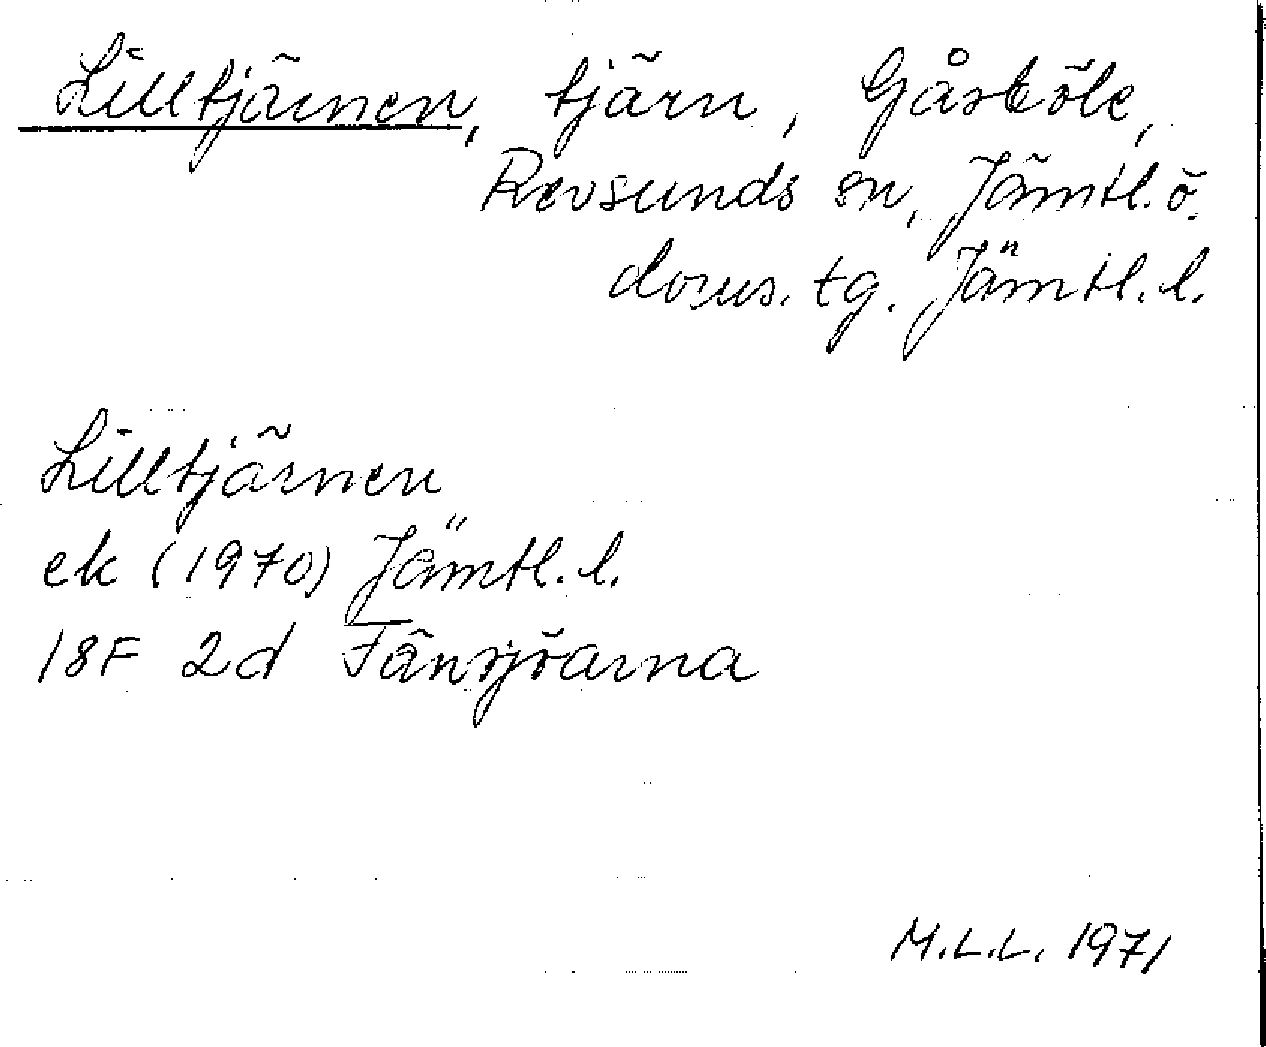 Lilltjärnen, tjärn, Gåsböle,
Revsunds sn, Jämtl. ö.
doms. tg. Jämtl. l.
Lilltjärnen
ek (1970) Jämtl. l.
18F 2d Fånsjöarna
M.L.L. 1971